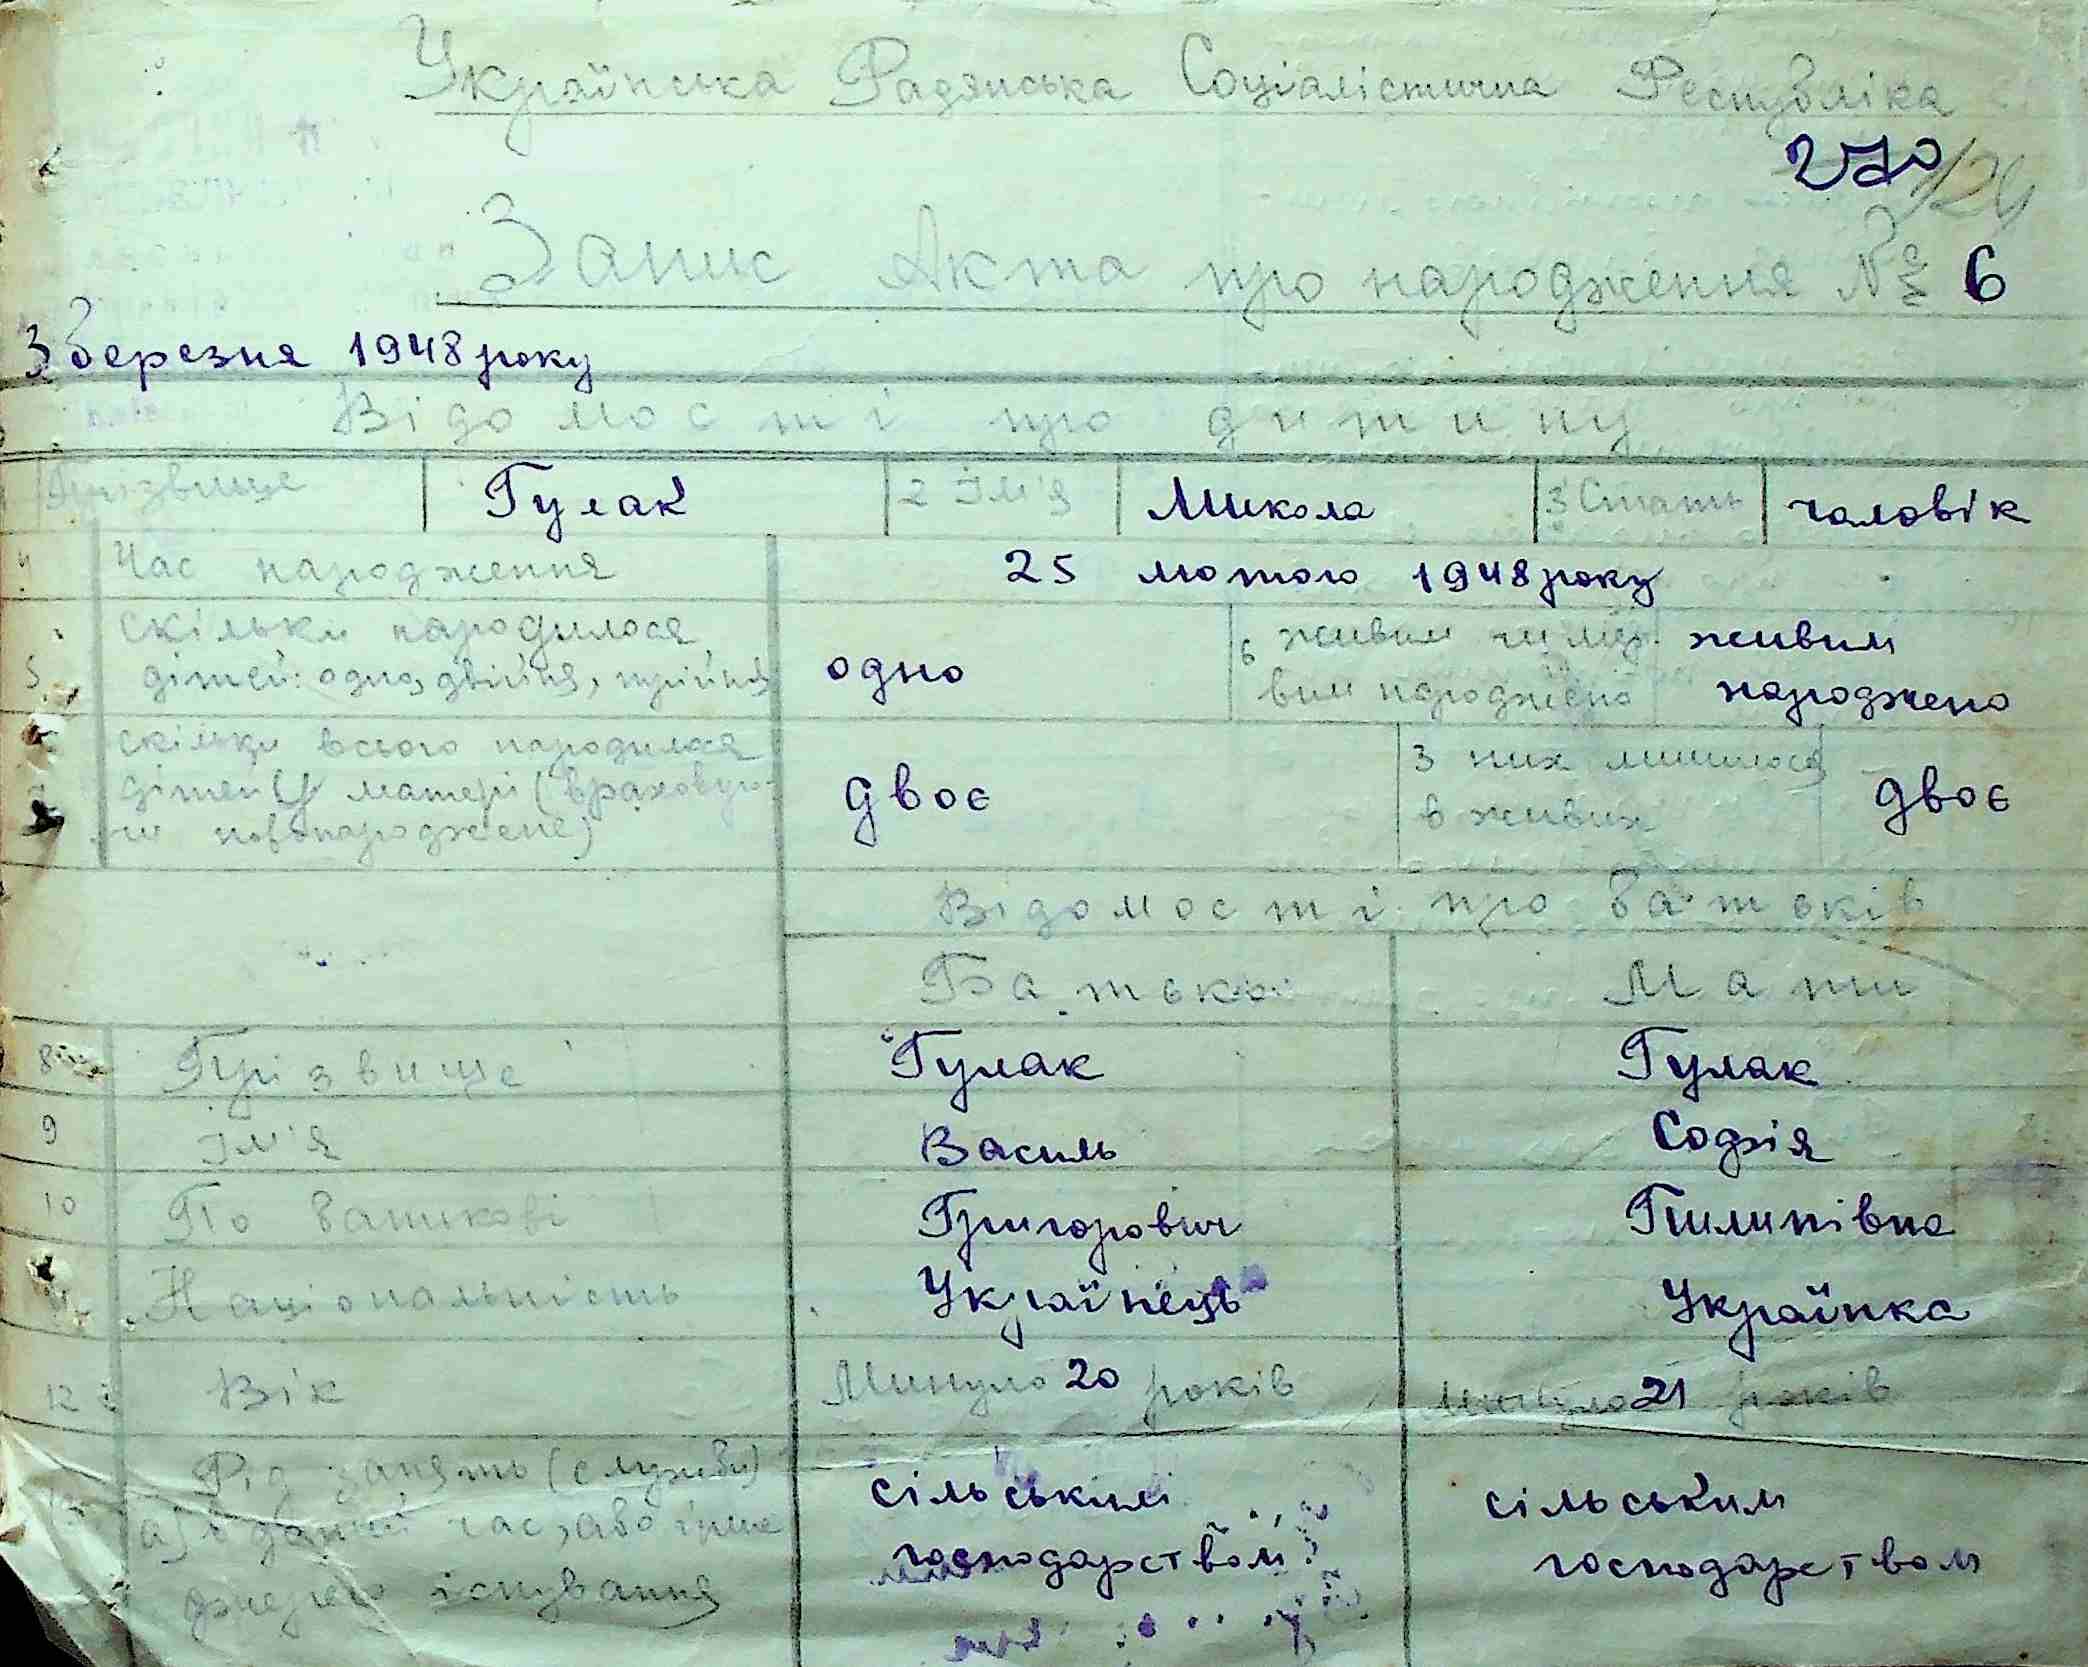 Українська Радянська Соціалістична Республіка
270
124
Запис Акта про народження № 6
3 березня 1948 року
Відомості про дитину
Прізвище Гулак 2 Ім'я Микола 3 Стать чоловік
4 Час народження 25 лютого 1948 року
5 скільки народилося дітей: одно, двійня, трійня одно 6 живим чи мер- вим народжено живим народжено
7 скільки всього народилося дітей у матері (враховую- чи новонароджене) двоє З них лишилося в живих двоє
Відомості про батьків
Батько Мати
8 Прізвище Гулак Гулак
9 Ім'я Василь Софія
10 По батькові Григорович Пилипівна
11 Національність Українець Українка
12 Вік Минуло 20 років Минуло 21 років
Рід занять (служби) сільським сільським
а) в даний час, або інше господарством господарством
джерело існування